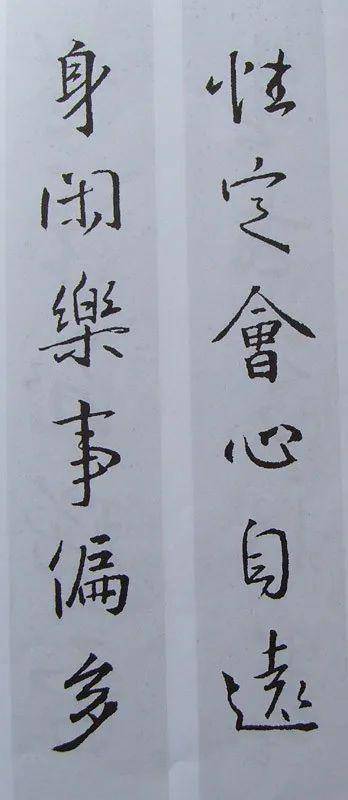 性定會心自遠
身閑樂事偏多